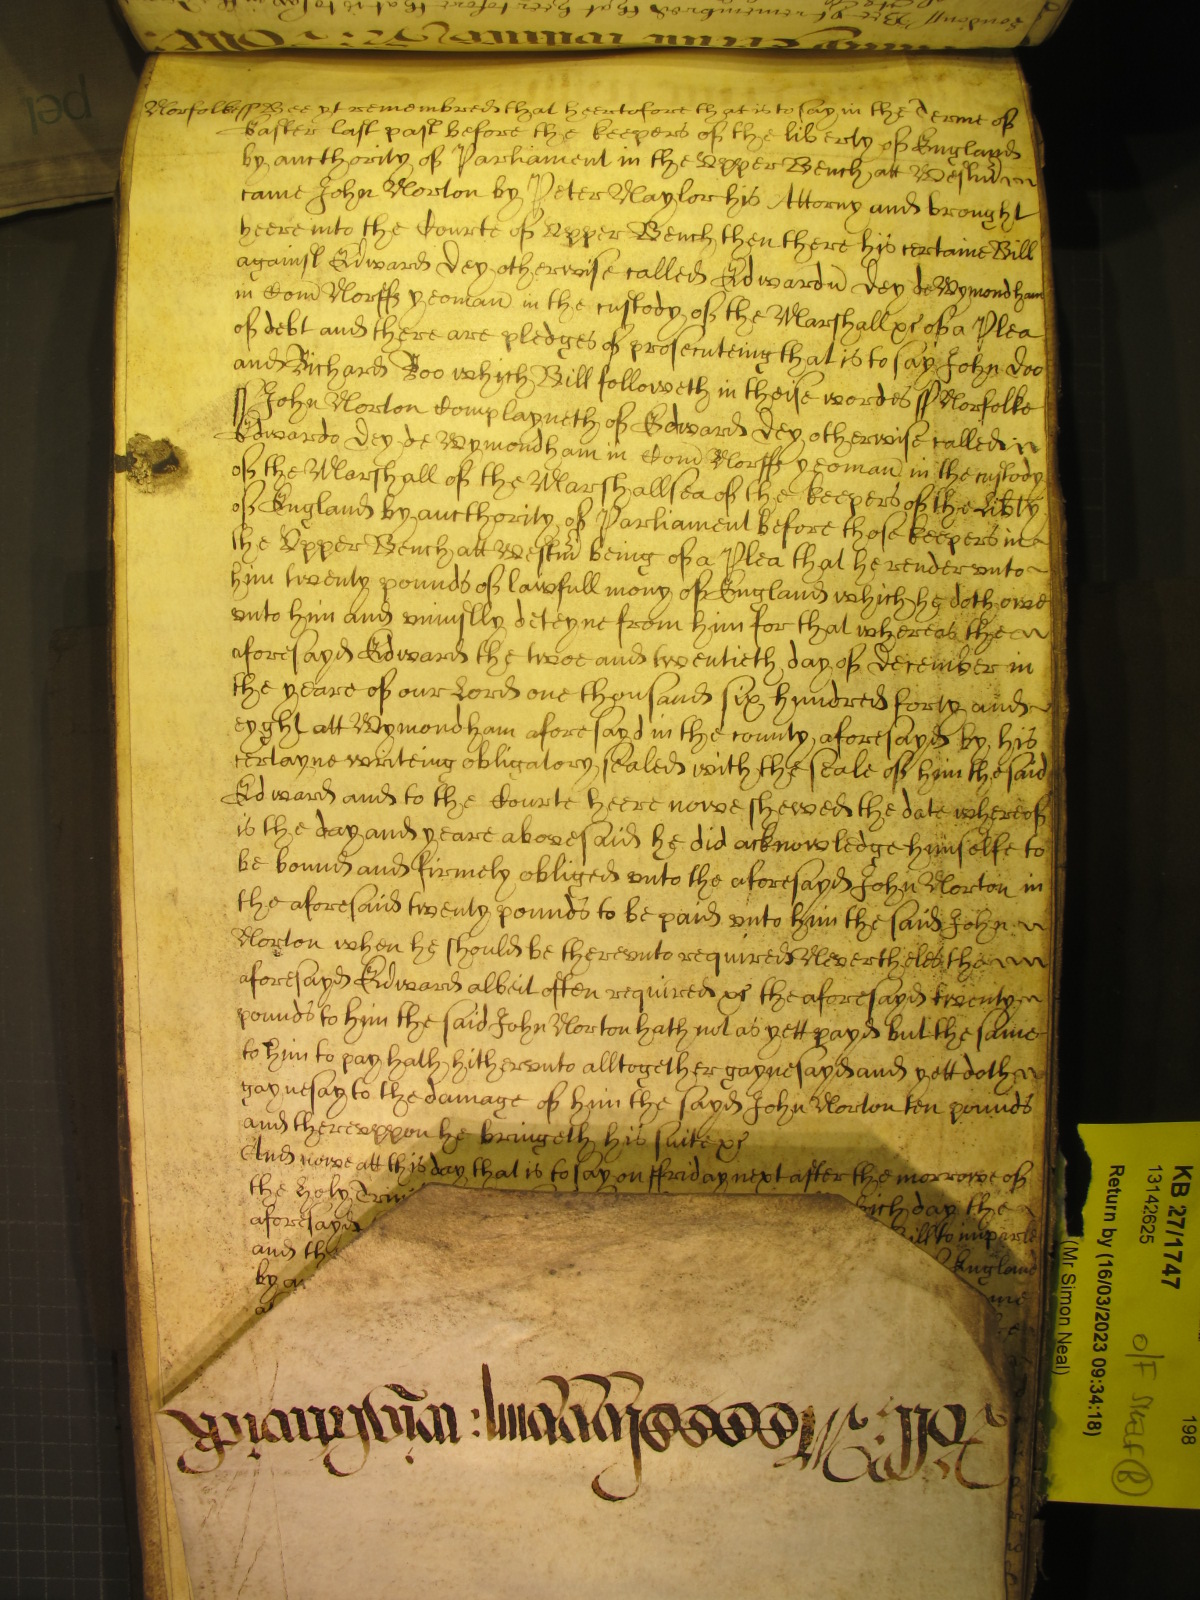 Norfolke ss Bee yt remembred that heertofore that is to say in the Terme of
Easter last past before the keepers of the liberty of England
by aucthority of Parliament in the Upper Bench att Westm̄
came John Norton by Peter Naylor his Attorny and brought
heere into the Courte of Upper Bench then there his certaine Bill
against Edward Dey otherwise called Edwardū Dey de Wymondham
in Com̄ Norff yeoman̄ in the custody of the Marshall &c of a Plea
of debt and there are pledges of prosecuteing that is to say John Doo
and Richard Roo which Bill followeth in theise wordes ss Norfolke
ss John Norton Complayneth of Edward Dey otherwise called
Edwardo Dey de Wymondham in Com̄ Norff yeoman̄ in the custody
of the Marshall of the Marshallsea of the keepers of the Lib̄ty
of England by aucthority of Parliament before those keepers in
the Upper Bench att Westm̄ being of a Plea that he render unto
him twenty pounds of lawfull mony of England which he doth owe
unto him and uniustly deteyne from him for that whereas the
aforesayd Edward the twoe and twentieth day of December in
the yeare of our Lord one thousand six hundred forty and
eyght att Wymondham aforesayd in the county aforesayd by his
certayne writeing obligatory sealed with the seale of him the said
Edward and to the Courte heere nowe shewed the date whereof
is the day and yeare abovesaid he did acknowledge himselfe to
be bound and firmely obliged unto the aforesayd John Norton in
the aforesaid twenty pounds to be paid unto him the said John
Norton when he should be thereunto required Neverthelesse the
aforesayd Edward albeit often required &c the aforesayd twenty
pounds to him the said John Norton hath not as yett payd but the same
to him to pay hath hitherunto alltogether gaynesayd and yett doth
gaynesay to the damage of him the sayd John Norton ten pounds
and thereuppon he bringeth his suite &c
And nowe att this day that is to say on ffriday next after the morrowe of
the Holy Trini
aforesayd
ich day the
and th
Bill to imparle
by a
England
KB 27/1747
13142625
198
Return by (16/03/2023 09:34:18)
(Mr Simon Neal)